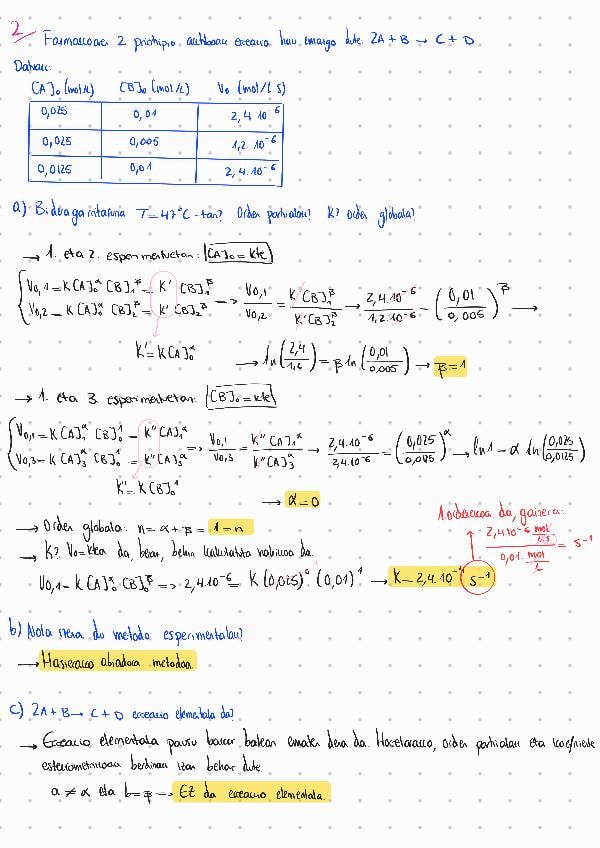 2
Farmazioaren 2 printzipio aktiboau erreakzio hau emango dute: 2A + B → C + D
Datuak:
[A]₀ (mol/L) [B]₀ (mol/L) V₀ (mol/L s)
0,025 0,01 2,4·10⁻⁶
0,025 0,005 1,2·10⁻⁶
0,0125 0,01 2,4·10⁻⁶
a) T=47°C-tan? Orden partzialau? K? Orden globala?
→ 1. eta 2. esperimentuetan: [A]₀ = kte
V₀,₁ = K [A]₀^α [B]₁^β = K' [B]₁^β
V₀,₂ = K [A]₀^α [B]₂^β = K' [B]₂^β → V₀,₁/V₀,₂ = K' [B]₁^β / K' [B]₂^β → 2,4·10⁻⁶/1,2·10⁻⁶ = (0,01/0,005)^β →
K' = K[A]₀^α → ln(2,4/1,2) = β ln(0,01/0,005) → β = 1
→ 1. eta 3. esperimentuetan: [B]₀ = kte
V₀,₁ = K [A]₁^α [B]₀¹ = K'' [A]₁^α
V₀,₃ = K [A]₃^α [B]₀¹ = K'' [A]₃^α => V₀,₁/V₀,₃ = K'' [A]₁^α / K'' [A]₃^α → 2,4·10⁻⁶/2,4·10⁻⁶ = (0,025/0,0125)^α → ln 1 = α ln(0,025/0,0125)
K'' = K[B]₀¹
→ α = 0
→ Orden globala: n = α + β = 1 = n
1 ordenekoa da, gainera:
2,4·10⁻⁶ mol/L·s / 0,01 mol/L = s⁻¹
→ K? V₀=ktea da, beraz, behin kalkulatzea da.
V₀,₁ = K [A]₀^α [B]₀^β => 2,4·10⁻⁶ = K (0,025)⁰ (0,01)¹ → K = 2,4·10⁻⁴ s⁻¹
b) Nola da metodo esperimentalau?
→ Hasierako abiadura metodoa.
c) 2A + B → C + D erreakzio elementala da?
→ Erreakzio elementala pausu bakar batean ematen dena da. Horretarako, orden partzialau eta koefiziente
estekiometrikoau berdinau izan behar dute.
a ≠ α eta b = β → EZ da erreakzio elementala.